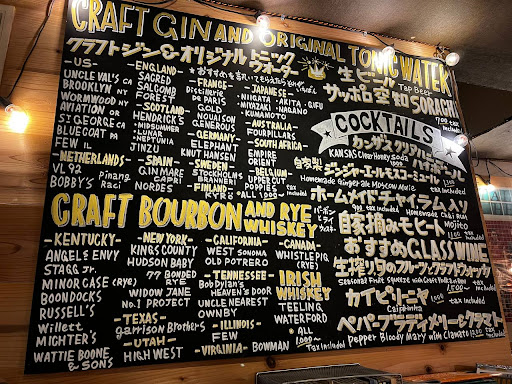 CRAFT GIN AND ORIGINAL TONIC WATER
クラフトジン&オリジナルトニックウォーター
-US-
UNCLE VAL'S CA
BROOKLYN NY
WORMWOOD NY
AVIATION OR
ST GEORGE CA
BLUECOAT PA
FEW IL
-NETHERLANDS-
VL 92
BOBBY'S
-ENGLAND-
SACRED
SALCOMB
FOREST
-SCOTLAND-
HENDRICK'S
MIDSUMMER
LUNAR
NEPTUNIA
JINZU
-SPAIN-
GIN MARE
CAPRI
NORDES
Pinang
Raci
-FRANCE-
Distillerie
DE PARIS
GOLD
NOUAISON
GENEROUS
-GERMANY-
ELEPHANT
KNUT HANSEN
-SWEDEN-
STOCKHOLMS
BRANNERI
-FINLAND-
KYRO
-JAPANESE-
NIIGATA・AKITA・GIFU
MIYAZAKI・NAGANO
KUMAMOTO
-AUSTRALIA-
FOURPILLAR
-SOUTH AFRICA-
EMPIRE
ORIENT
-BELGIUM-
UPPER CUT
POPPIES
ALL 1000- tax included
生ビール Tap Beer
サッポロ 空知 SORACHI
1,00 tax included
COCKTAILS
カンザスクリアハニーソーダ
KANSKS Clear Honey Soda
自家製
ジンジャーエールモスコーミュール
Homemade Ginger ale Moscow Mule
ホームメイドチャイラム入り
Homemade Chai Rum
自家摘みモヒート
Mojito
おすすめGLASS WINE
生搾り旬のフルーツとクラフトウォッカ
カイピリーニャ
Caipirinha
1,000- tax included
ペパーブラディメリー&クラマト
Pepper Bloody Mary with Clamato
CRAFT BOURBON AND RYE WHISKEY
-KENTUCKY-
ANGELS ENVY
STAGG Jr.
MINOR CASE (RYE)
BOONDOCKS
RUSSELL'S
Willett
MIGHTER'S
WATTIE BOONE
& SONS
-NEW YORK-
KINGS COUNTY
HUDSON BABY
77 BONDED
RYE
WIDOW JANE
No.1 PROJECT
-TEXAS-
Garrison Brothers
-UTAH-
HIGH WEST
-CALIFORNIA-
WEST SONOMA
OLD POTRERO
-TENNESSEE-
Bob Dylan's
HEAVEN'S DOOR
UNCLE NEAREST
OWNBY
-ILLINOIS-
FEW
-VIRGINIA-
BOWMAN
-CANADA-
WHISTLE PIG
(RYE)
IRISH
WHISKEY
TEELING
WATERFORD
ALL
1000~
Tax included